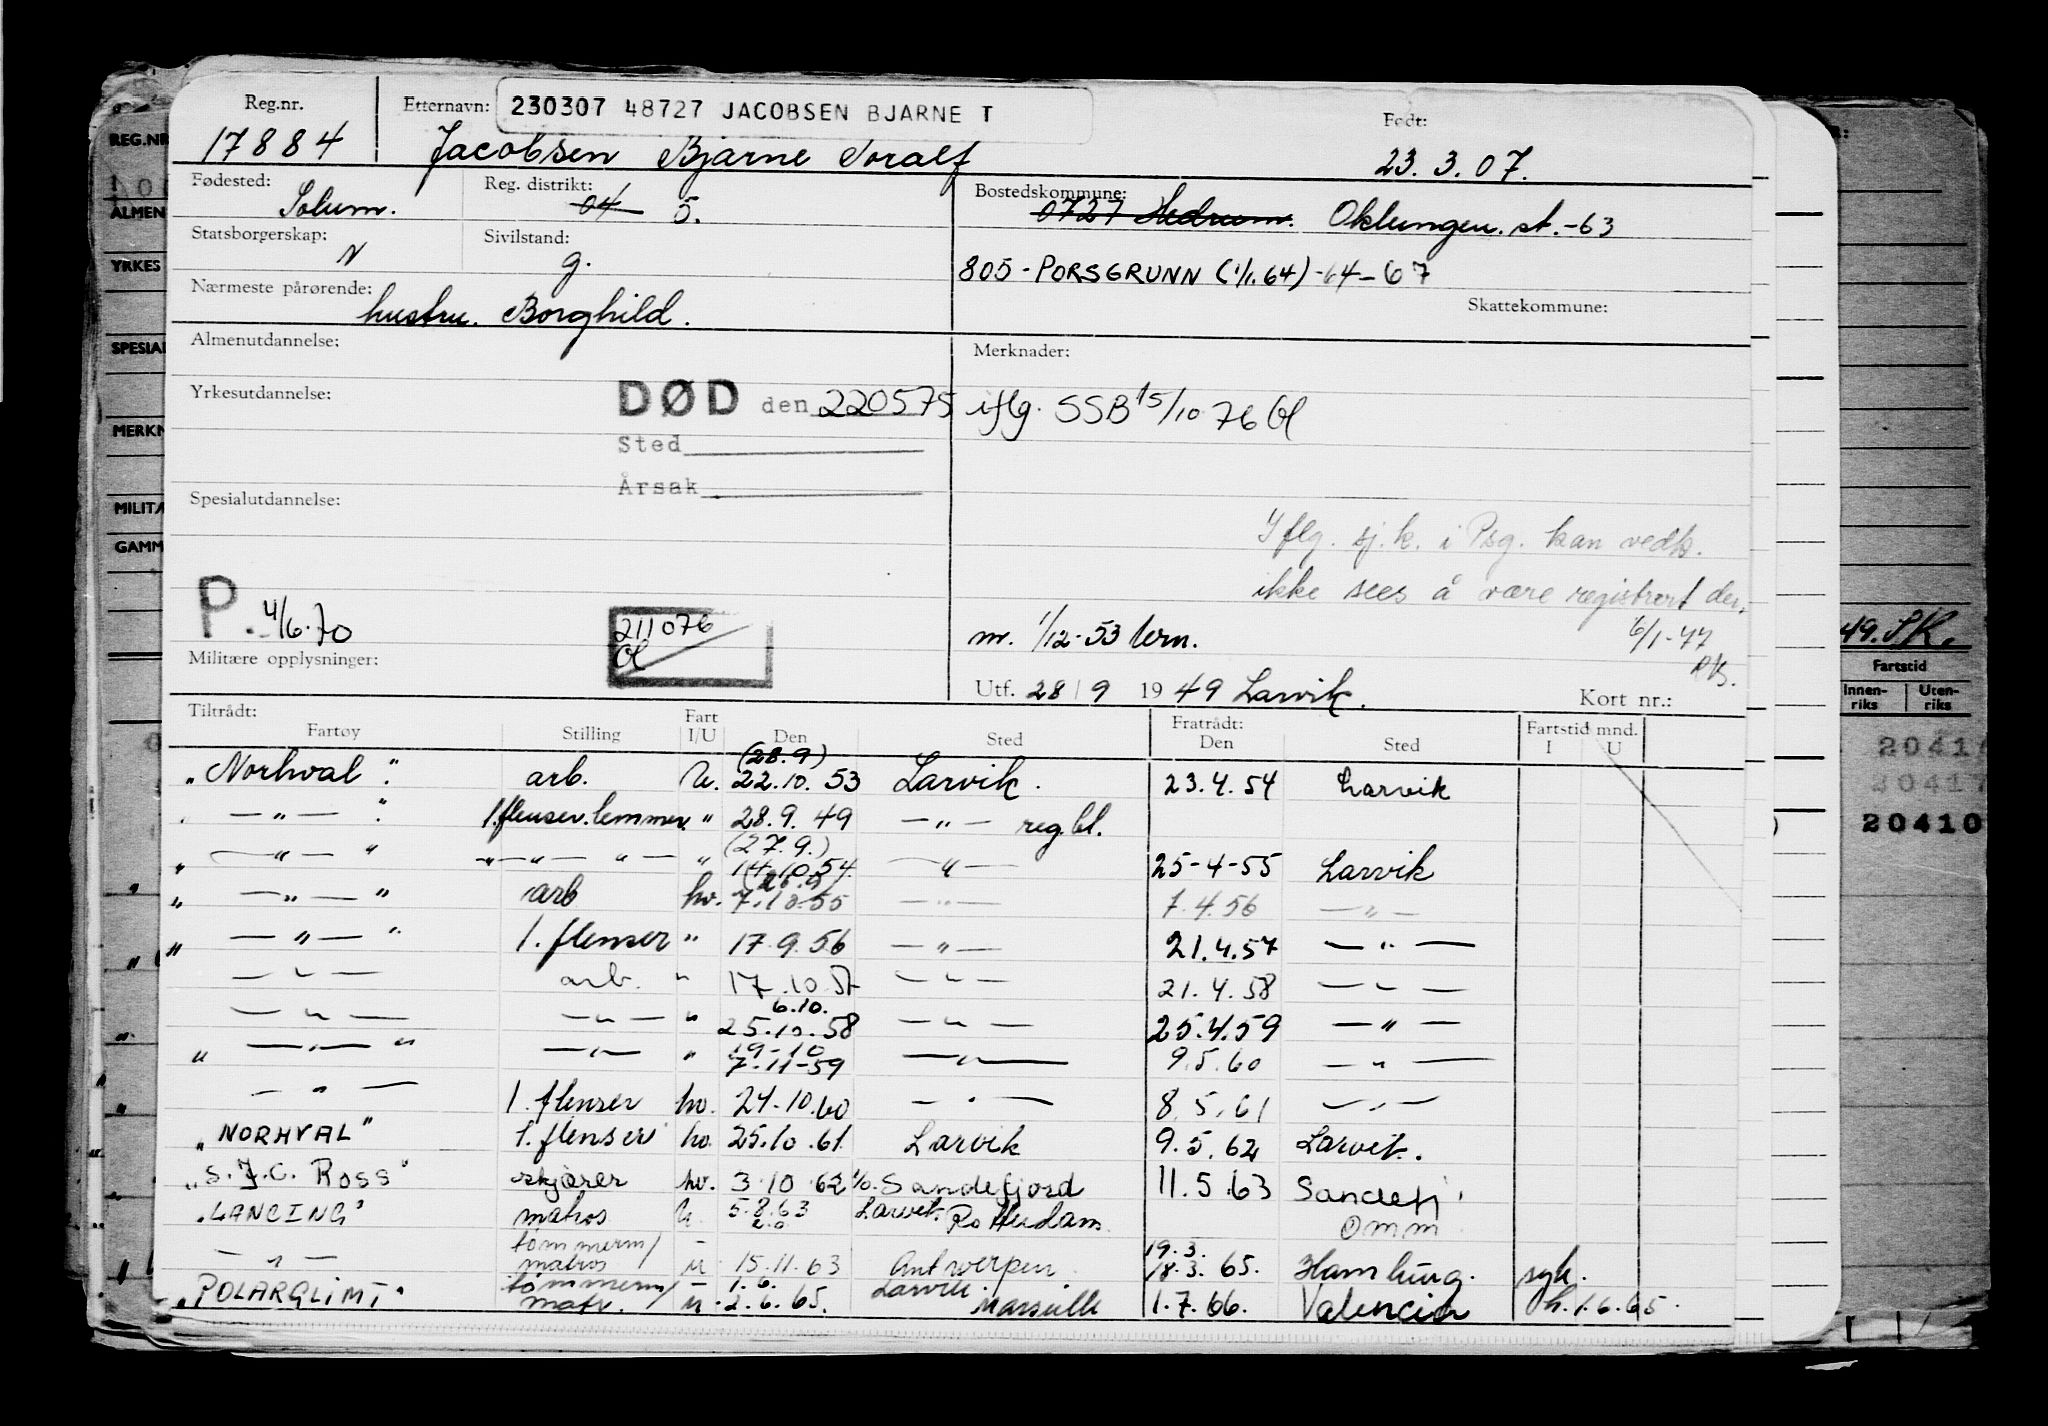 Reg.nr. Etternavn: 230307 48727 JACOBSEN BJARNE T Født:
17884 Jacobsen Bjarne Toralf 23.3.07.
Fødested: Solum. Reg. distrikt: 04 5. Bostedskommune: 0727 Hedrum. Oklungen. st.-63
Statsborgerskap: N Sivilstand: g. 805-PORSGRUNN (1/1.64)-64-67
Nærmeste pårørende: hustru. Borghild. Skattekommune:
Almenutdannelse: Merknader:
Yrkesutdannelse: DØD den 220575 iflg. SSB 15/10 76 Gl
Sted
Årsak
Spesialutdannelse:
Iflg. sj.k. i Psg. kan vedk.
ikke sees å være registrert der.
6/1-77
P. 4/6.70 211076 Gl m. 1/12-53
Militære opplysninger: Utf. 28/9 1949 Larvik. Kort nr.:
Tiltrådt: Fratrådt: Fartstid mnd.
Fartøy Stilling Fart I/U Den Sted Den Sted I U
"Norhval". arb. U. (28.9) 22.10.53 Larvik. 23.4.54 Larvik
— " — 1.flenser.lemmer. " 28.9.49 — " — reg.bl.
" — " — " — " — " — " (27.9.) 14.10.54 — " — 25-4-55 Larvik
" — " — " arb hv. 7.10.55 — " — 7.4.56 — " —
" — " — " 1. flenser " 17.9.56 — " — 21.4.57 — " —
— " — arb. " 17.10.57 — " — 21.4.58 — " —
— " — — " — " 6.10. 25.10.58 — " — 25.4.59 — " —
" — " — " — " — " 19-10 7.11-59 — " — 9.5.60 — " —
— " — 1. flenser hv. 24.10.60 — " — 8.5.61 — " —
"NORHVAL" 1. flenser hv. 25.10.61 Larvik 9.5.62 Larvik.
"S.J.C. Ross" skjærer hv. 3.10.62 Sandefjord 11.5.63 Sandefj.
"LANCING" matros U. 5.8.63 Larvik. Rotterdam Omm
— " — tømmerm/ matros U 15.11.63 Antwerpen 19.3. 18.3.65. Hamburg. syk.
"POLARGLIMT" tømmerm/ matr. U. 1.6. 2.6.65. Larvik. Marseille 1.7.66. Valencia h.1.6.65.
REG.NR
ALMEN
YRKES
SPESIAL
MERKN
MILITÆ
GAMM
49. SK.
Fartstid
Innen-riks Uten-riks
20417
20410